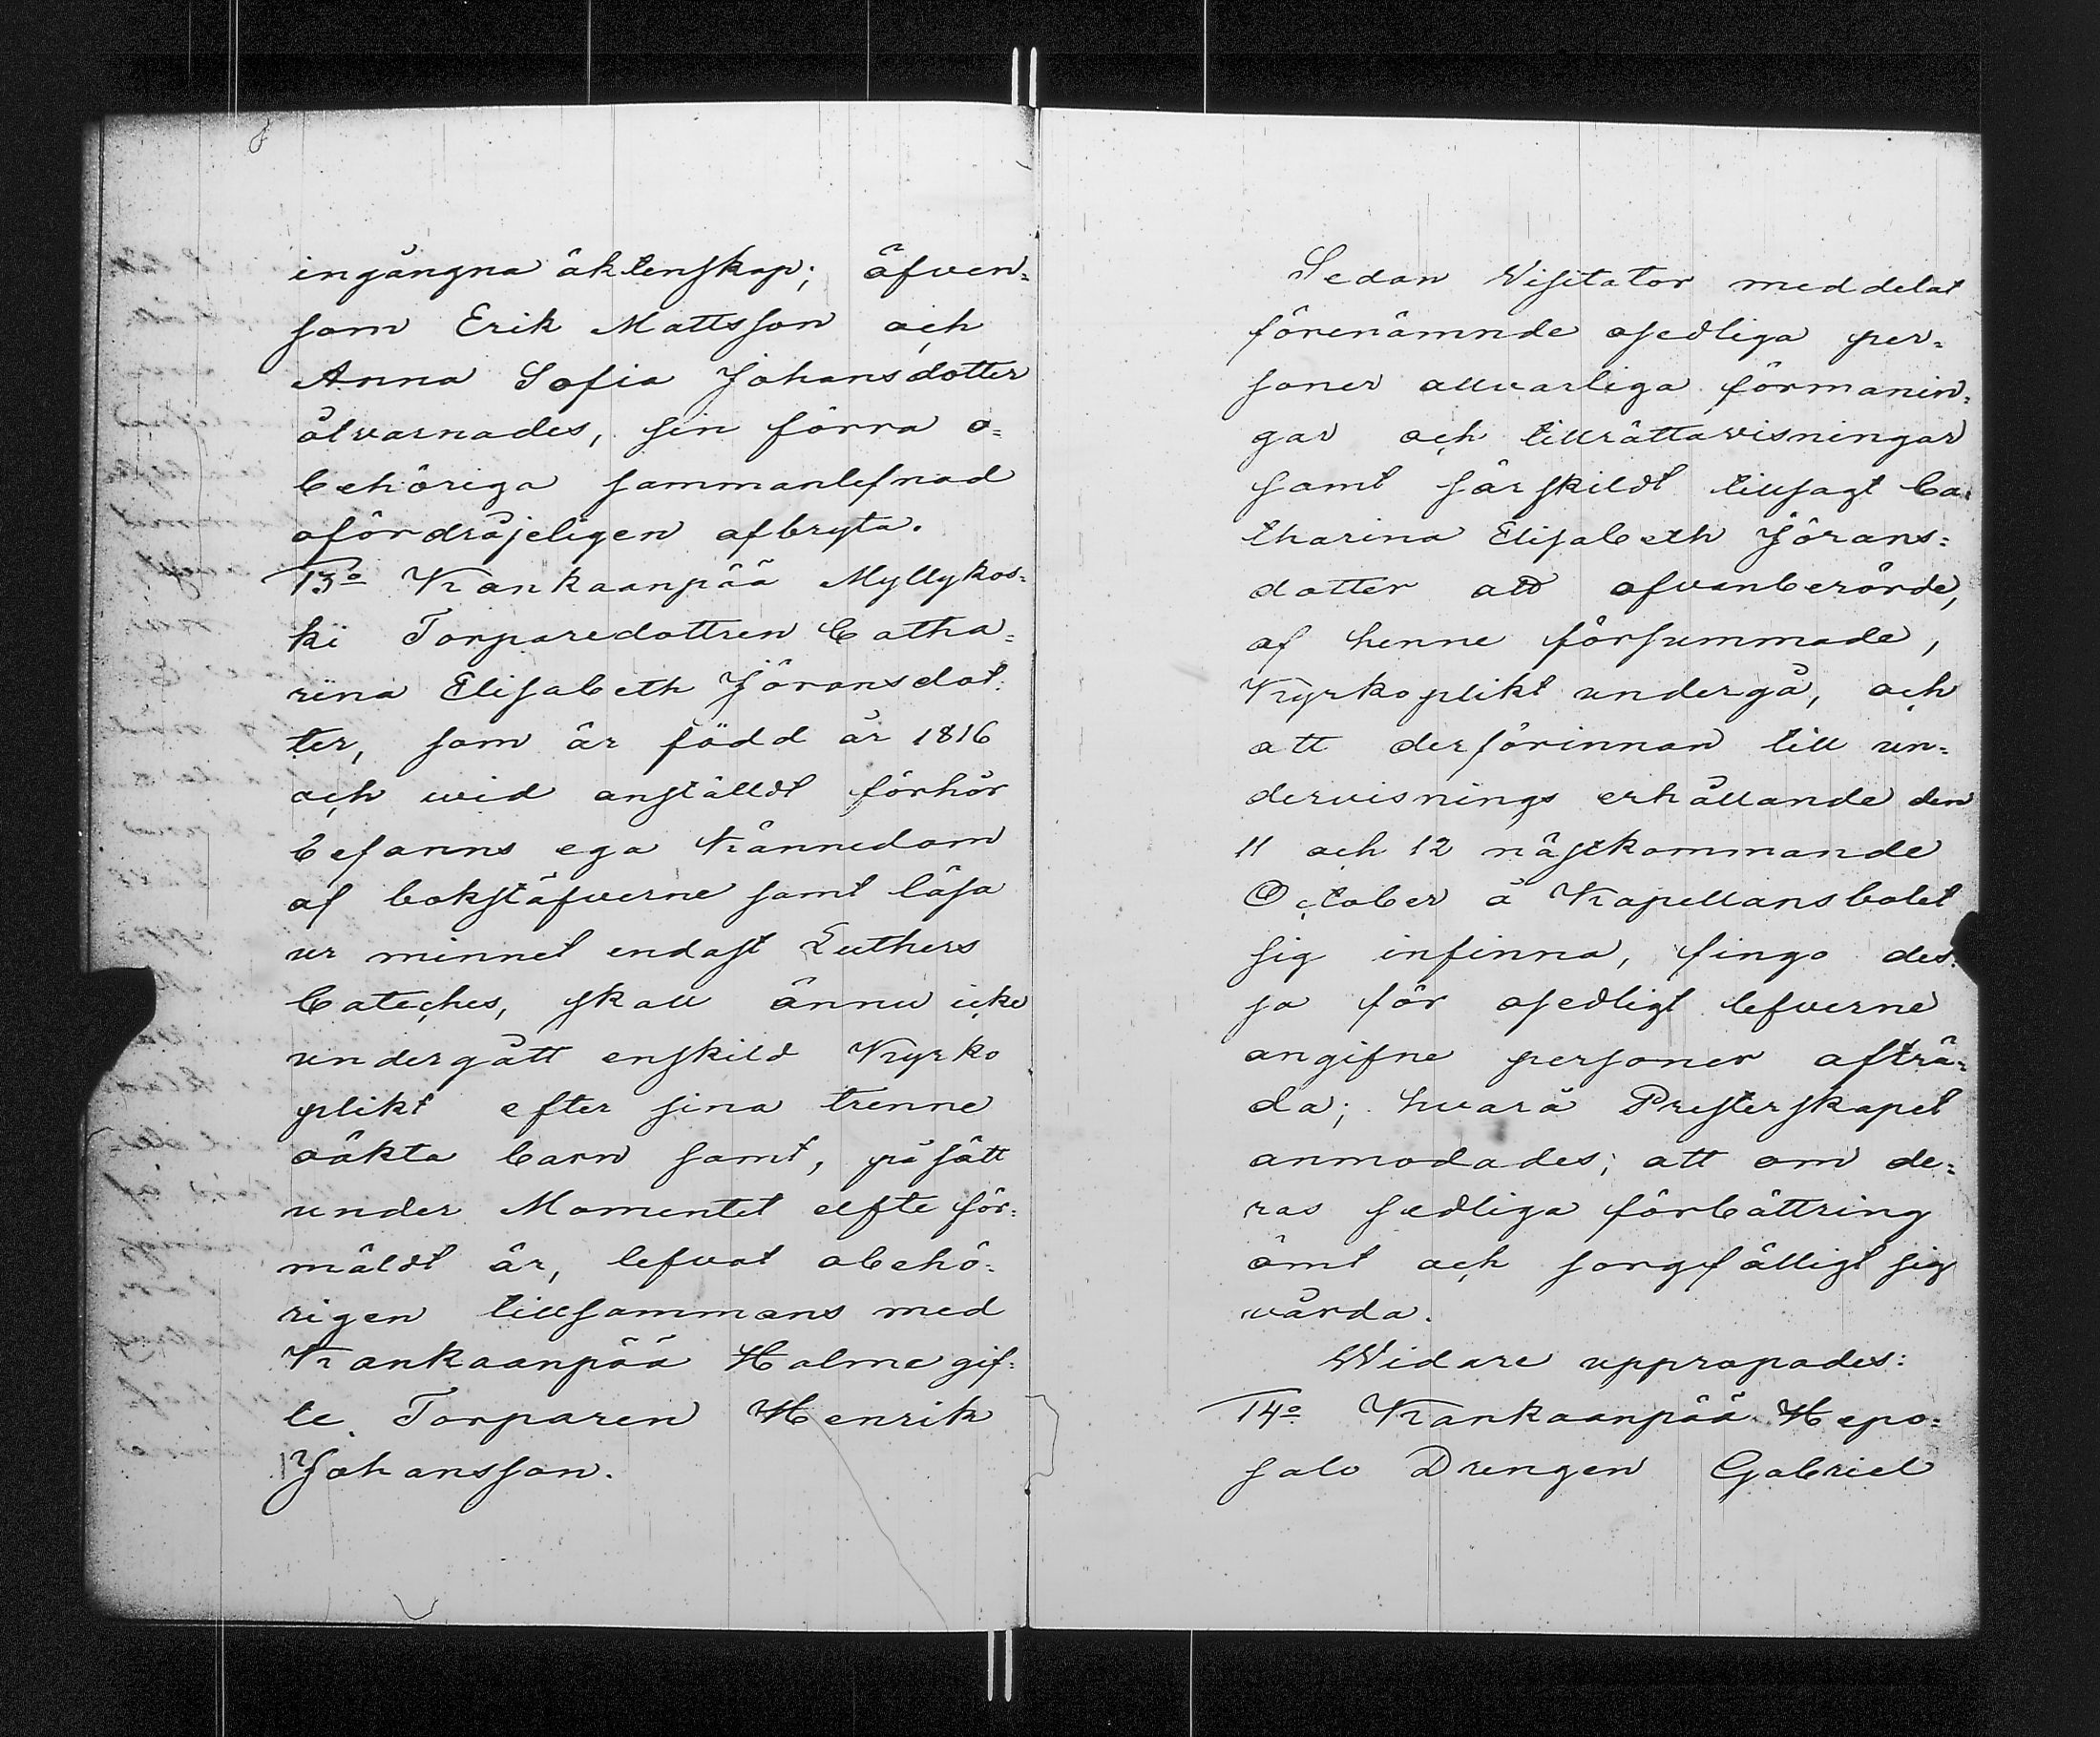 ingångna äktenskap; äfven=
som Erik Mattsson och
Anna Sofia Johansdotter
åtvarnades, sin förra o=
behöriga sammanlefnad
ofördröjeligen afbryta.
13o Kankaanpää Myllykos=
ki Torparedottren Catha=
rina Elisabeth Jöransdot=
ter, som är född år 1816
och wid anställdt förhör
befanns ega kännedom
af bokstäfverne samt läsa
ur minnet endast Luthers
Cateches, skall ännu icke
undergått enskild Kyrko
plikt efter sina trenne
oäkta barn samt, på sätt
under Momentet elfte för=
mäldt är, lefvat obehö=
rigen tillsammans med
Kankaanpää Holma gif=
te Torparen Henrik
Johansson.
Sedan Visitator meddelat
förenämnde osedliga per=
soner allvarliga förmanin=
gar och tillrättavisningar
samt särskildt tillsagt Ca=
tharina Elisabeth Jörans=
dotter att ofvanberörde,
af henne försummade,
Kyrkoplikt undergå, och
att derförinnan till un=
dervisnings erhållande den
11 och 12 nästkommande
October å Kapellansbolet
sig infinna, fingo des=
sa för osedligt lefverne
angifne personer afträ=
da; hvarå Presterskapet
anmodades; att om de=
ras sedliga förbättring
ömt och sorgfälligt sig
vårda.
Widare uppropades:
14o Kankaanpää Hepo=
salo Drengen Gabriel